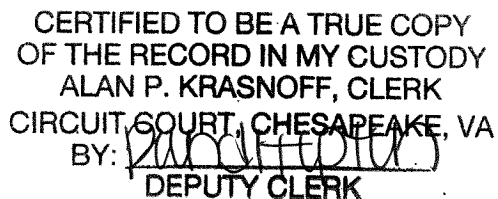 CERTIFIED TO BE A TRUE COPY
OF THE RECORD IN MY CUSTODY
ALAN P. KRASNOFF, CLERK
CIRCUIT COURT, CHESAPEAKE, VA
BY:
DEPUTY CLERK